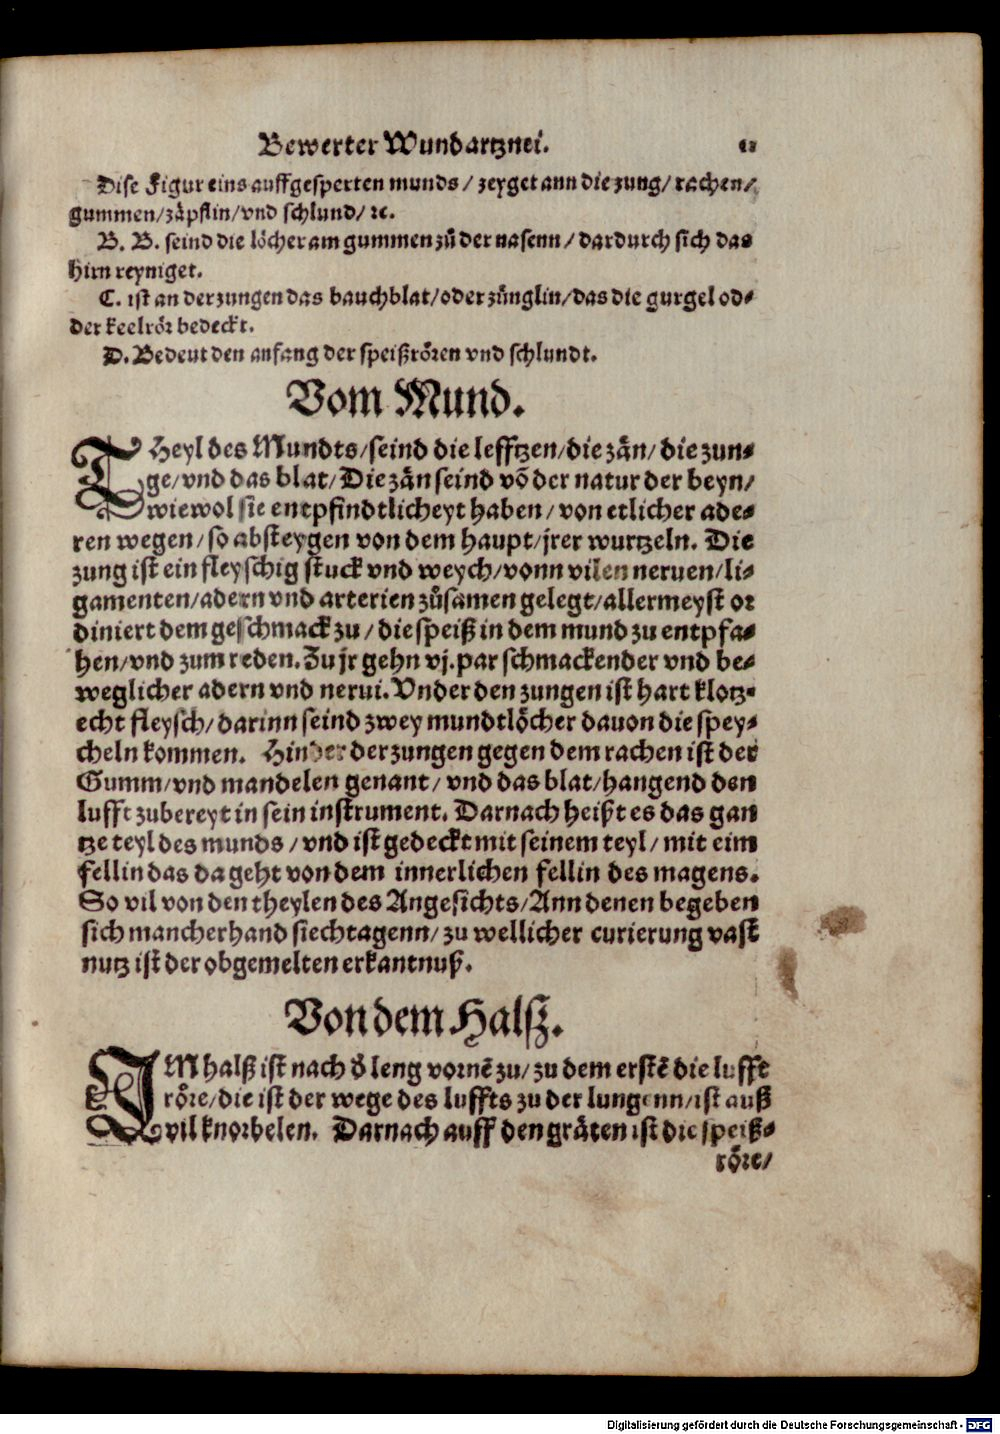 Bewerter Wundartznei.
Dise Figur eins auffgesperten munds / zeyget ann die zung/ rachen/
gummen/zäpflin/vnd schlund/ ꝛc.
B. B. seind die löcher am gummen zů der nasenn / dardurch sich das
hirn reyniget.
C. ist an der zungen das bauchblat/oder zünglin/das die gurgel od⸗
der keelrör bedeckt.
D. Bedeut den anfang der speißrören vnd schlundt.
Vom Mund.
THeyl des Mundts/seind die lefftzen/die zän/ die zun⸗
ge/vnd das blat/ Die zän seind võ der natur der beyn/
wiewol sie entpfindtlicheyt haben/ von etlicher ade⸗
ren wegen/ so absteygen von dem haupt/jrer wurtzeln. Die
zung ist ein fleyschig stuck vnd weych/vonn vilen neruen/li⸗
gamenten/adern vnd arterien zůsamen gelegt/allermeyst or
diniert dem geschmack zu / die speiß in dem mund zu entpfa⸗
hen/vnd zum reden. Zu jr gehn vj. par schmackender vnd be⸗
weglicher adern vnd nerui. Vnder den zungen ist hart klotz⸗
echt fleysch/darinn seind zwey mundtlöcher dauon die spey⸗
cheln kommen. Hinder der zungen gegen dem rachen ist der
Gumm/vnd mandelen genant/ vnd das blat/hangend den
lufft zubereyt in sein instrument. Darnach heißt es das gan
tze teyl des munds / vnd ist gedeckt mit seinem teyl/ mit eim
fellin das da geht von dem innerlichen fellin des magens.
So vil von den theylen des Angesichts/Ann denen begeben
sich mancherhand siechtagenn/ zu wellicher curierung vast
nutz ist der obgemelten erkantnuß.
Von dem Halß.
IM halß ist nach d̓ leng vornẽ zu/ zu dem erstẽ die lufft
röre/die ist der wege des luffts zu der lungenn/ist auß
vil knorbelen. Darnach auff den gräten ist die speiß⸗
röre/
Digitalisierung gefördert durch die Deutsche Forschungsgemeinschaft - DFG